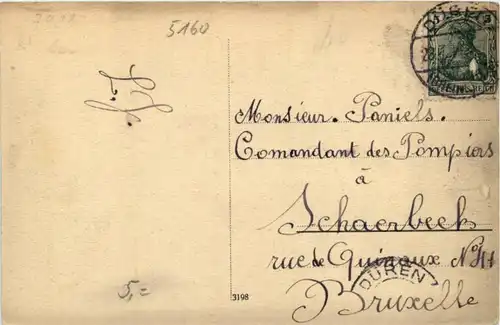 5160
Monsieur. Paniels.
Comandant des Pompiers
à
Schaerbeek
rue de Quinaux N°
DÜREN
Bruxelle
5,=
3198